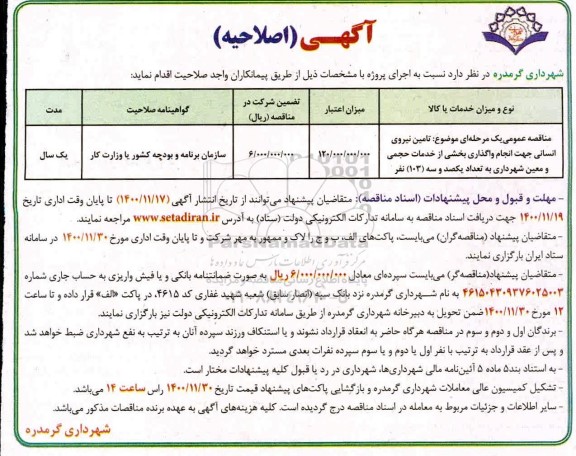 آگهــی (اصلاحیه)
شهرداری گرمدره در نظر دارد نسبت به اجرای پروژه با مشخصات ذیل از طریق پیمانکاران واجد صلاحیت اقدام نماید:
نوع و میزان خدمات یا کالا
میزان اعتبار
تضمین شرکت در مناقصه (ریال)
گواهینامه صلاحیت
مدت
مناقصه عمومی یک مرحله‌ای موضوع: تامین نیروی
انسانی جهت انجام واگذاری بخشی از خدمات حجمی
و معین شهرداری به تعداد یکصد و سه (۱۰۳) نفر
۱۲۰/۰۰۰/۰۰۰/۰۰۰
۶/۰۰۰/۰۰۰/۰۰۰
سازمان برنامه و بودچه کشور یا وزارت کار
یک سال
- مهلت و قبول و محل پیشنهادات (اسناد مناقصه): متقاضیان پیشنهاد می‌توانند از تاریخ انتشار آگهی (۱۴۰۰/۱۱/۱۷) تا پایان وقت اداری تاریخ
۱۴۰۰/۱۱/۱۹ جهت دریافت اسناد مناقصه به سامانه تدارکات الکترونیکی دولت (ستاد) به آدرس www.setadiran.ir مراجعه نمایند.
- متقاضیان پیشنهاد (مناقصه‌گران) می‌بایست، پاکت‌های الف، ب و ج را لاک و ممهور به مهر شرکت و تا پایان وقت اداری مورخ ۱۴۰۰/۱۱/۳۰ در سامانه
ستاد ایران بارگزاری نمایند.
- متقاضیان پیشنهاد(مناقصه‌گر) می‌بایست سپرده‌ای معادل ۶/۰۰۰/۰۰۰/۰۰۰ ریال به صورت ضمانتنامه بانکی و یا فیش واریزی به حساب جاری شماره
۴۶۱۵۰۴۳۰۹۳۷۶۰۲۵۰۰۳ به نام شهــرداری گرمدره نزد بانک سپه (انصار سابق) شعبه شهید غفاری کد ۴۶۱۵، در پاکت «الف» قرار داده و تا ساعت
۱۲ مورخ ۱۴۰۰/۱۱/۳۰ ضمن تحویل به دبیرخانه شهرداری گرمدره از طریق سامانه تدارکات الکترونیکی دولت نیز بارگزاری نمایند.
- برندگان اول و دوم و سوم در مناقصه هرگاه حاضر به انعقاد قرارداد نشوند و یا استنکاف ورزند سپرده آنان به ترتیب به نفع شهرداری ضبط خواهد شد
و پس از عقد قرارداد به ترتیب با نفر اول یا دوم و یا سوم سپرده نفرات بعدی مسترد خواهد گردید.
- به استناد بند۵ ماده ۵ آئین‌نامه مالی شهرداری‌ها، شهرداری در رد یا قبول کلیه پیشنهادات مختار است.
- تشکیل کمیسیون عالی معاملات شهرداری گرمدره و بازگشایی پاکت‌های پیشنهاد قیمت تاریخ ۱۴۰۰/۱۱/۳۰ راس ساعت ۱۴ می‌باشد.
- سایر اطلاعات و جزئیات مربوط به معامله در اسناد مناقصه درج گردیده است. کلیه هزینه‌های آگهی به عهده برنده مناقصات مذکور می‌باشد.
شهرداری گرمدره